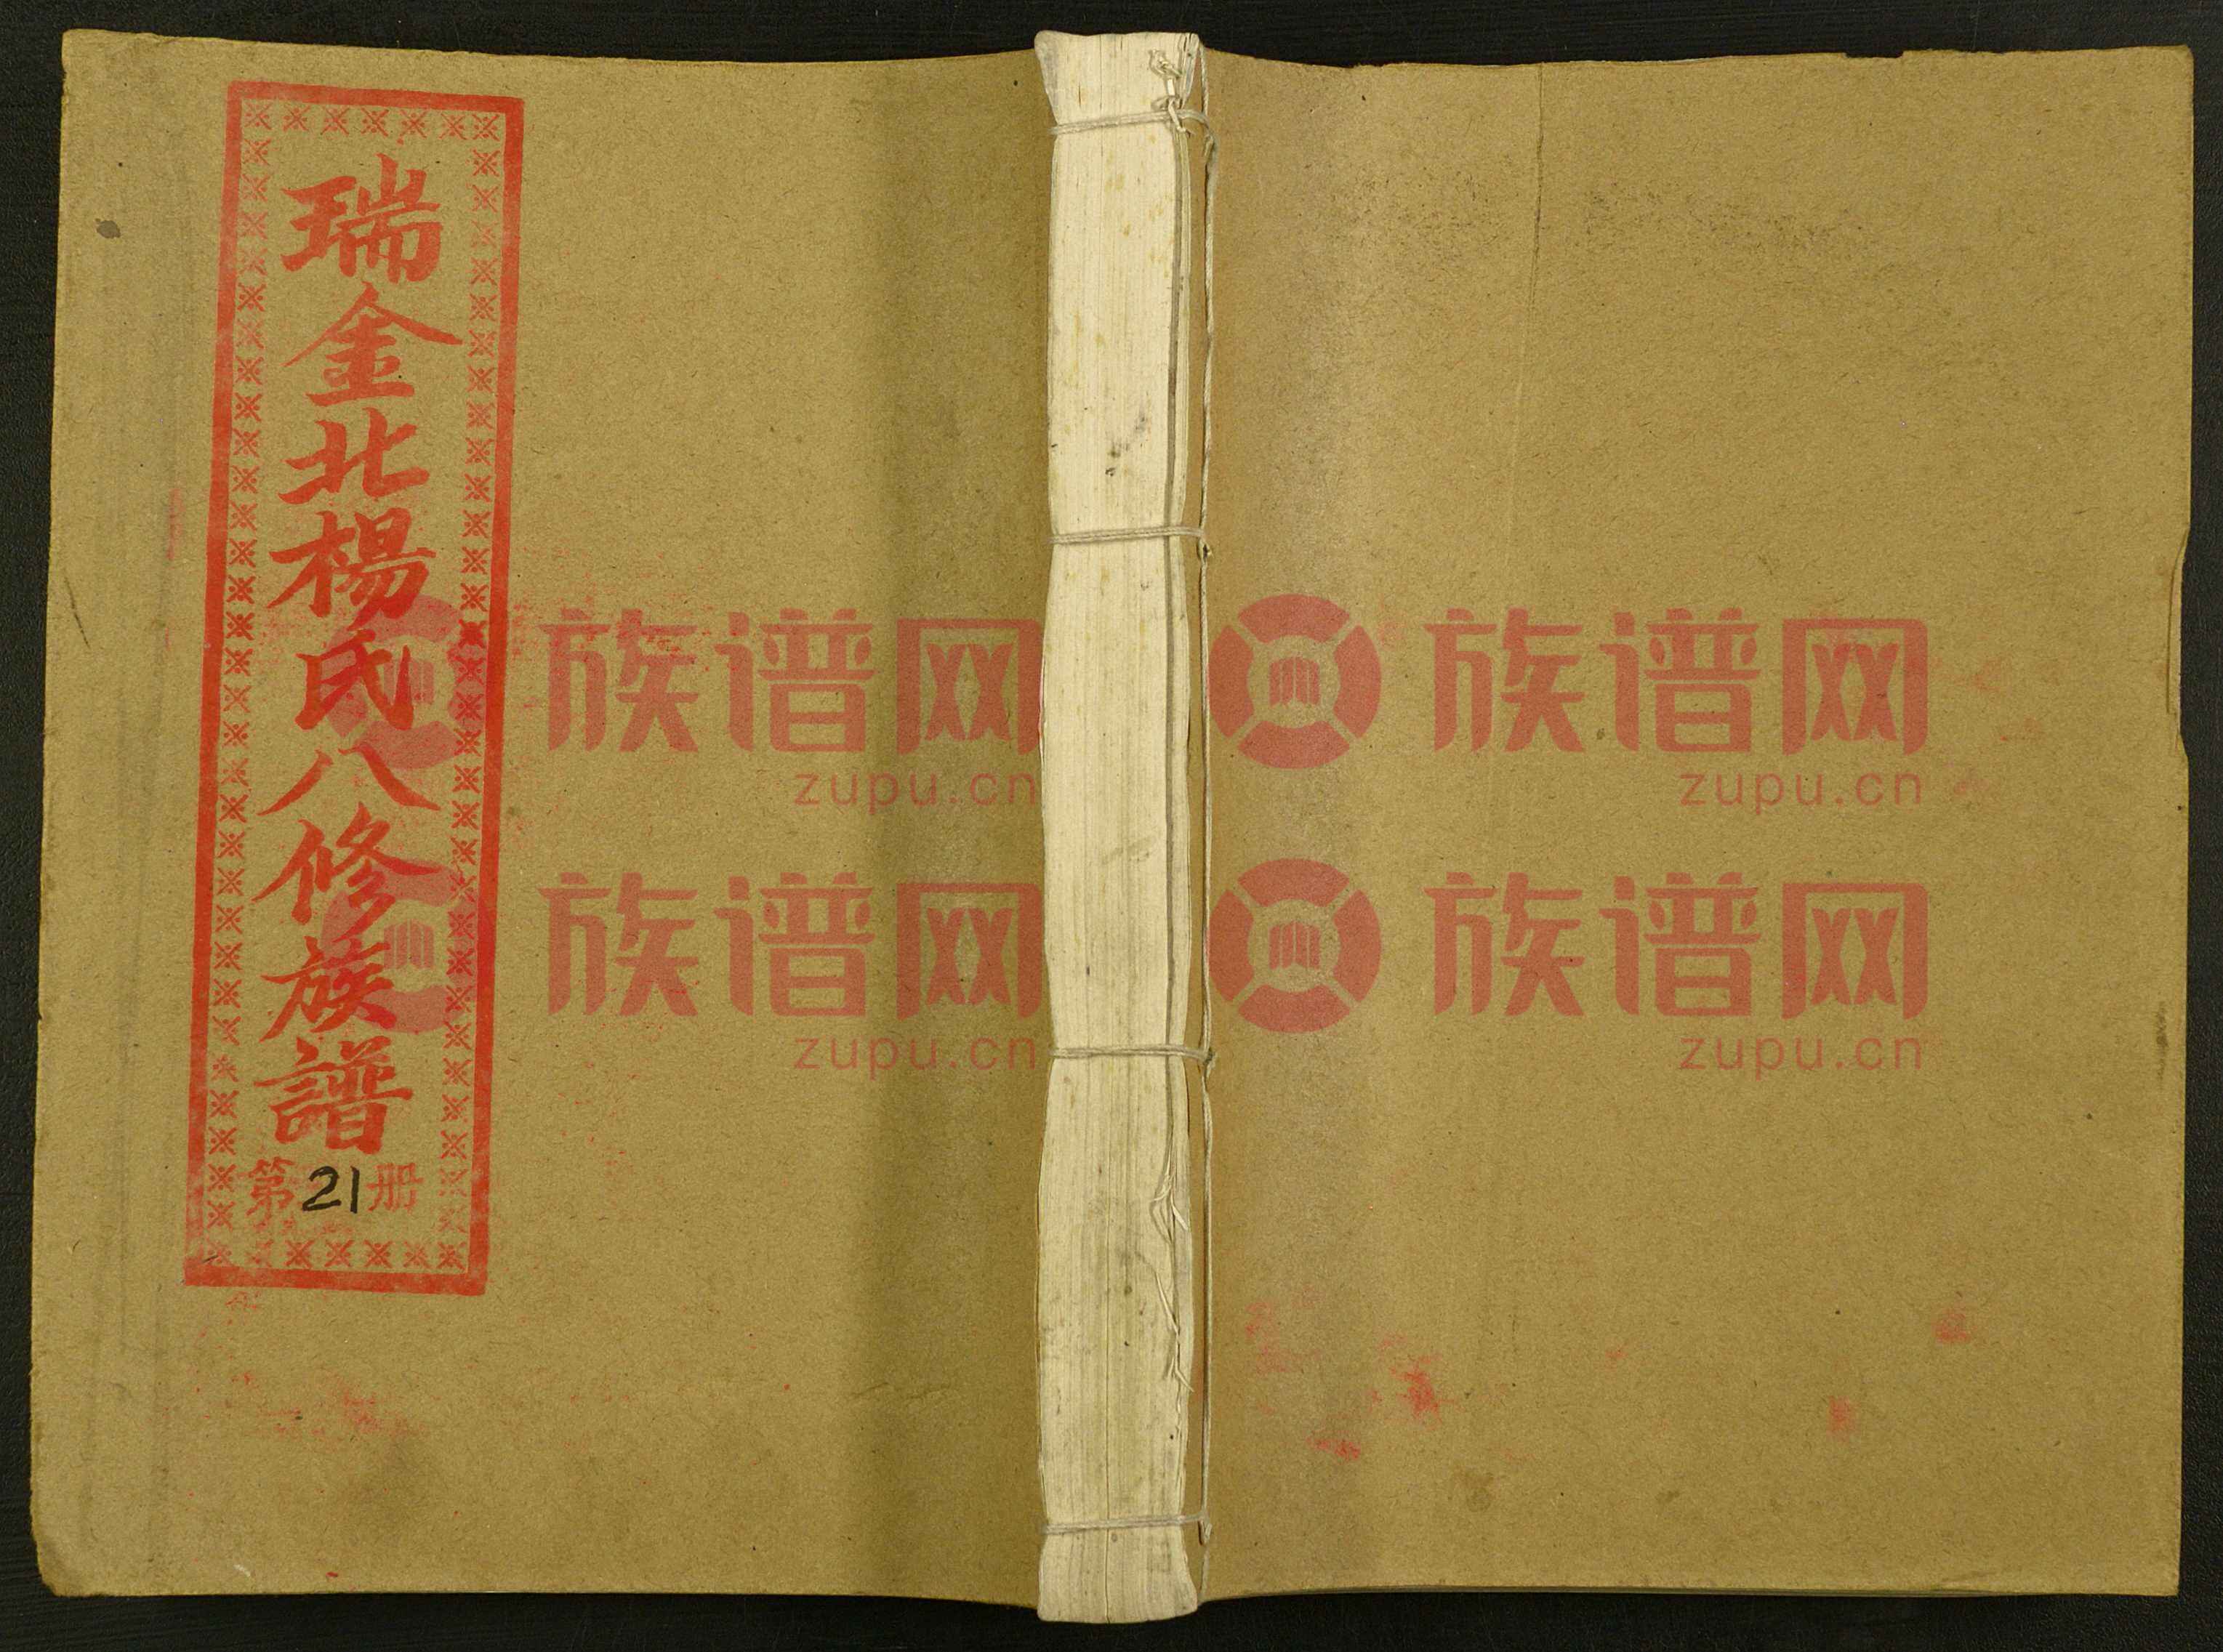 瑞金北楊氏八修族譜
第21册
族谱网
zupu.cn
族谱网
zupu.cn
族谱网
zupu.cn
族谱网
zupu.cn